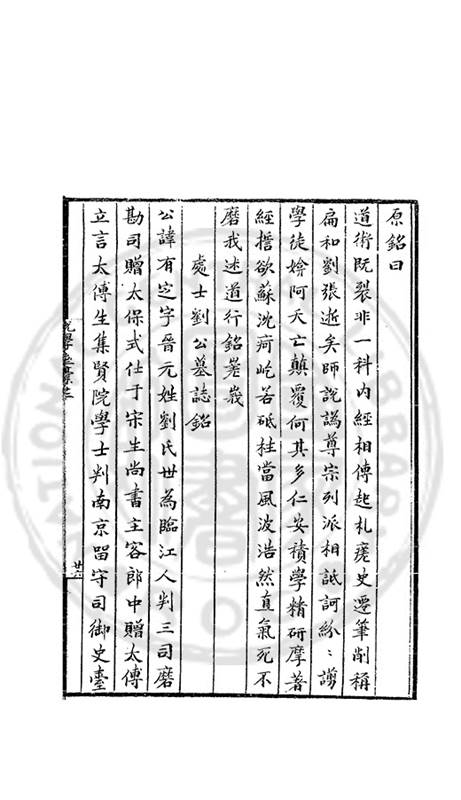 原銘曰
道術既裂非一科內經相傳起札瘥史遷筆削稱
扁和劉張逝矣師說譌尊宗列派相詆訶紛〻謭
學徒媕阿夭亡顛覆何其多仁安積學精研摩著
經擔欲蘇沈痾屹若砥柱當風波浩然直氣死不
磨我述道行銘嵳峩
處士劉公墓誌銘
公諱有定字晉元姓劉氏世為臨江人判三司磨
勘司贈太保式仕于宋生尚書主客郎中贈太傅
立言太傅生集賢院學士判南京留守司御史臺
廿六